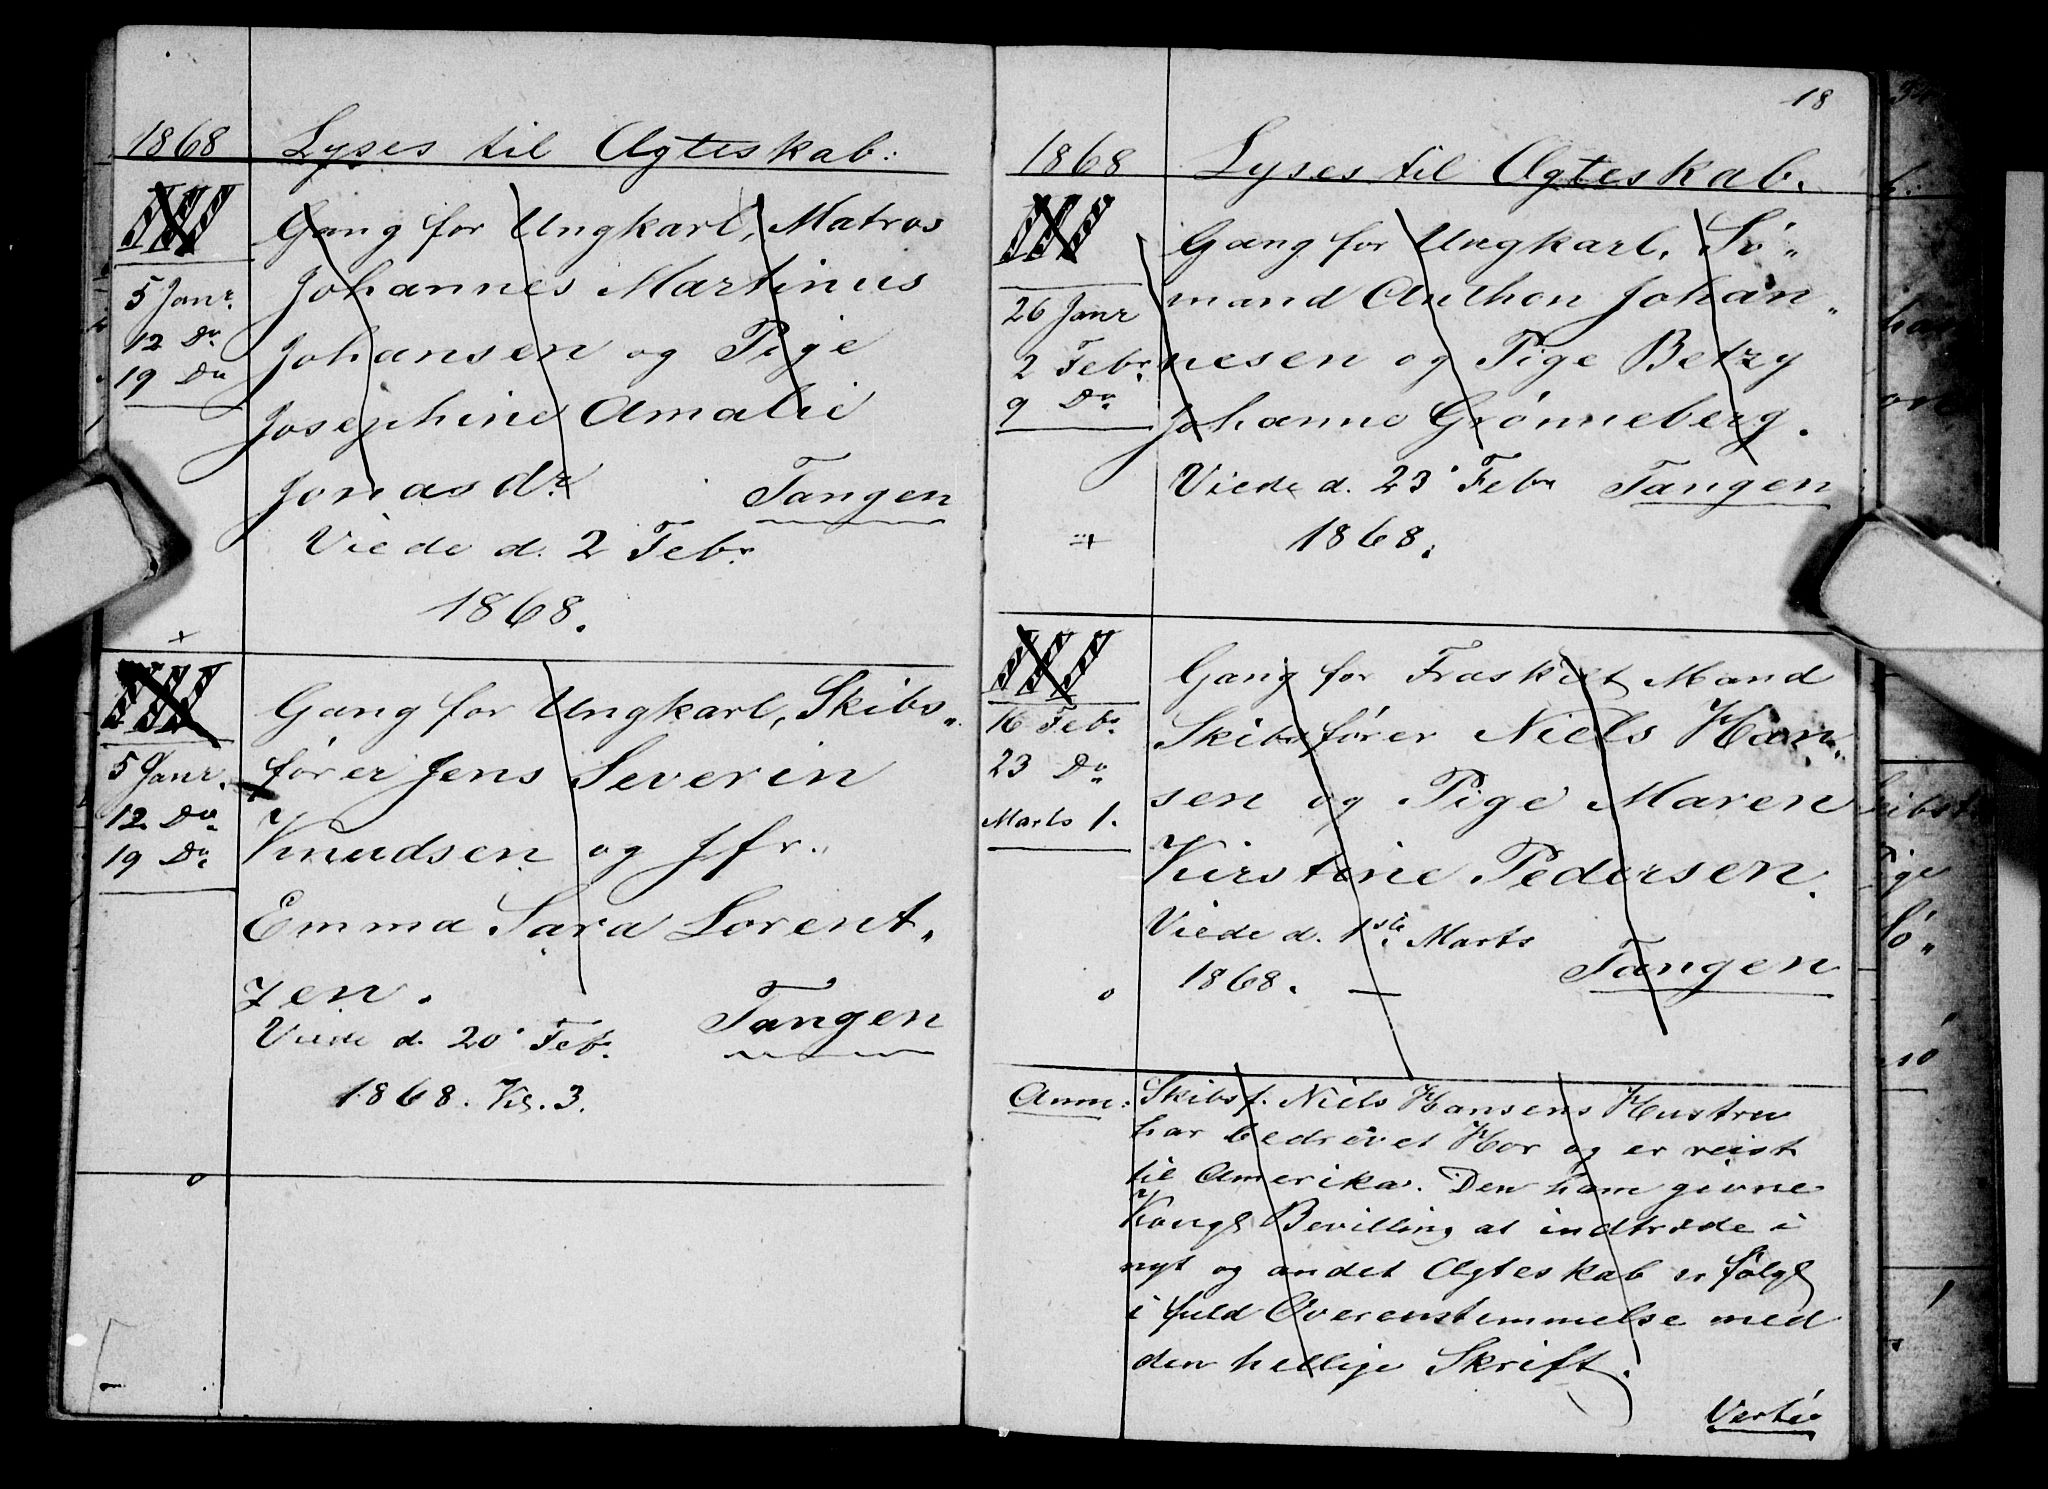 1868 Lyses til Ægteskab:
III Gang for Ungkarl, Matros
5 Janr. Johannes Martinus
12 Do Johansen og Pige
19 Do Josephine Amalie
Jonasdr. Tangen
Viede d. 2 Febr.
1868.
+
III Gang for Ungkarl, Skibs„
5 Janr. fører Jens Severin
12 Do Knudsen og Jfr.
19 Do Emma Sara Lorent„
zen. Tangen
Viede d. 20 Febr.
1868. Kl. 3.
o
18
1868 Lyses til Ægteskab.
III Gang for Ungkarl, Sø„
26 Janr mand Anthon Johan„
2 Febr. nesen og Pige Betzy
9 Do Johanne Grønneberg.
Viede d. 23 Febr Tangen
1868.
III Gang for Fraskilt Mand
16 Febr. Skibsfører Niels Han„
23 Do sen og Pige Maren
Marts 1. Kirstine Pedersen.
Viede d. 1ste Marts
1868. — Tangen
o
Anm: Skibsf. Niels Hansens Hustru
har bedrevet Hor og er reist
til Amerika. Den ham givne
Kongl Bevilling at indtræde i
nyt og andet Ægteskab er følgl
i fuld Overenstemmelse med
den hellige Skrift.
Verte